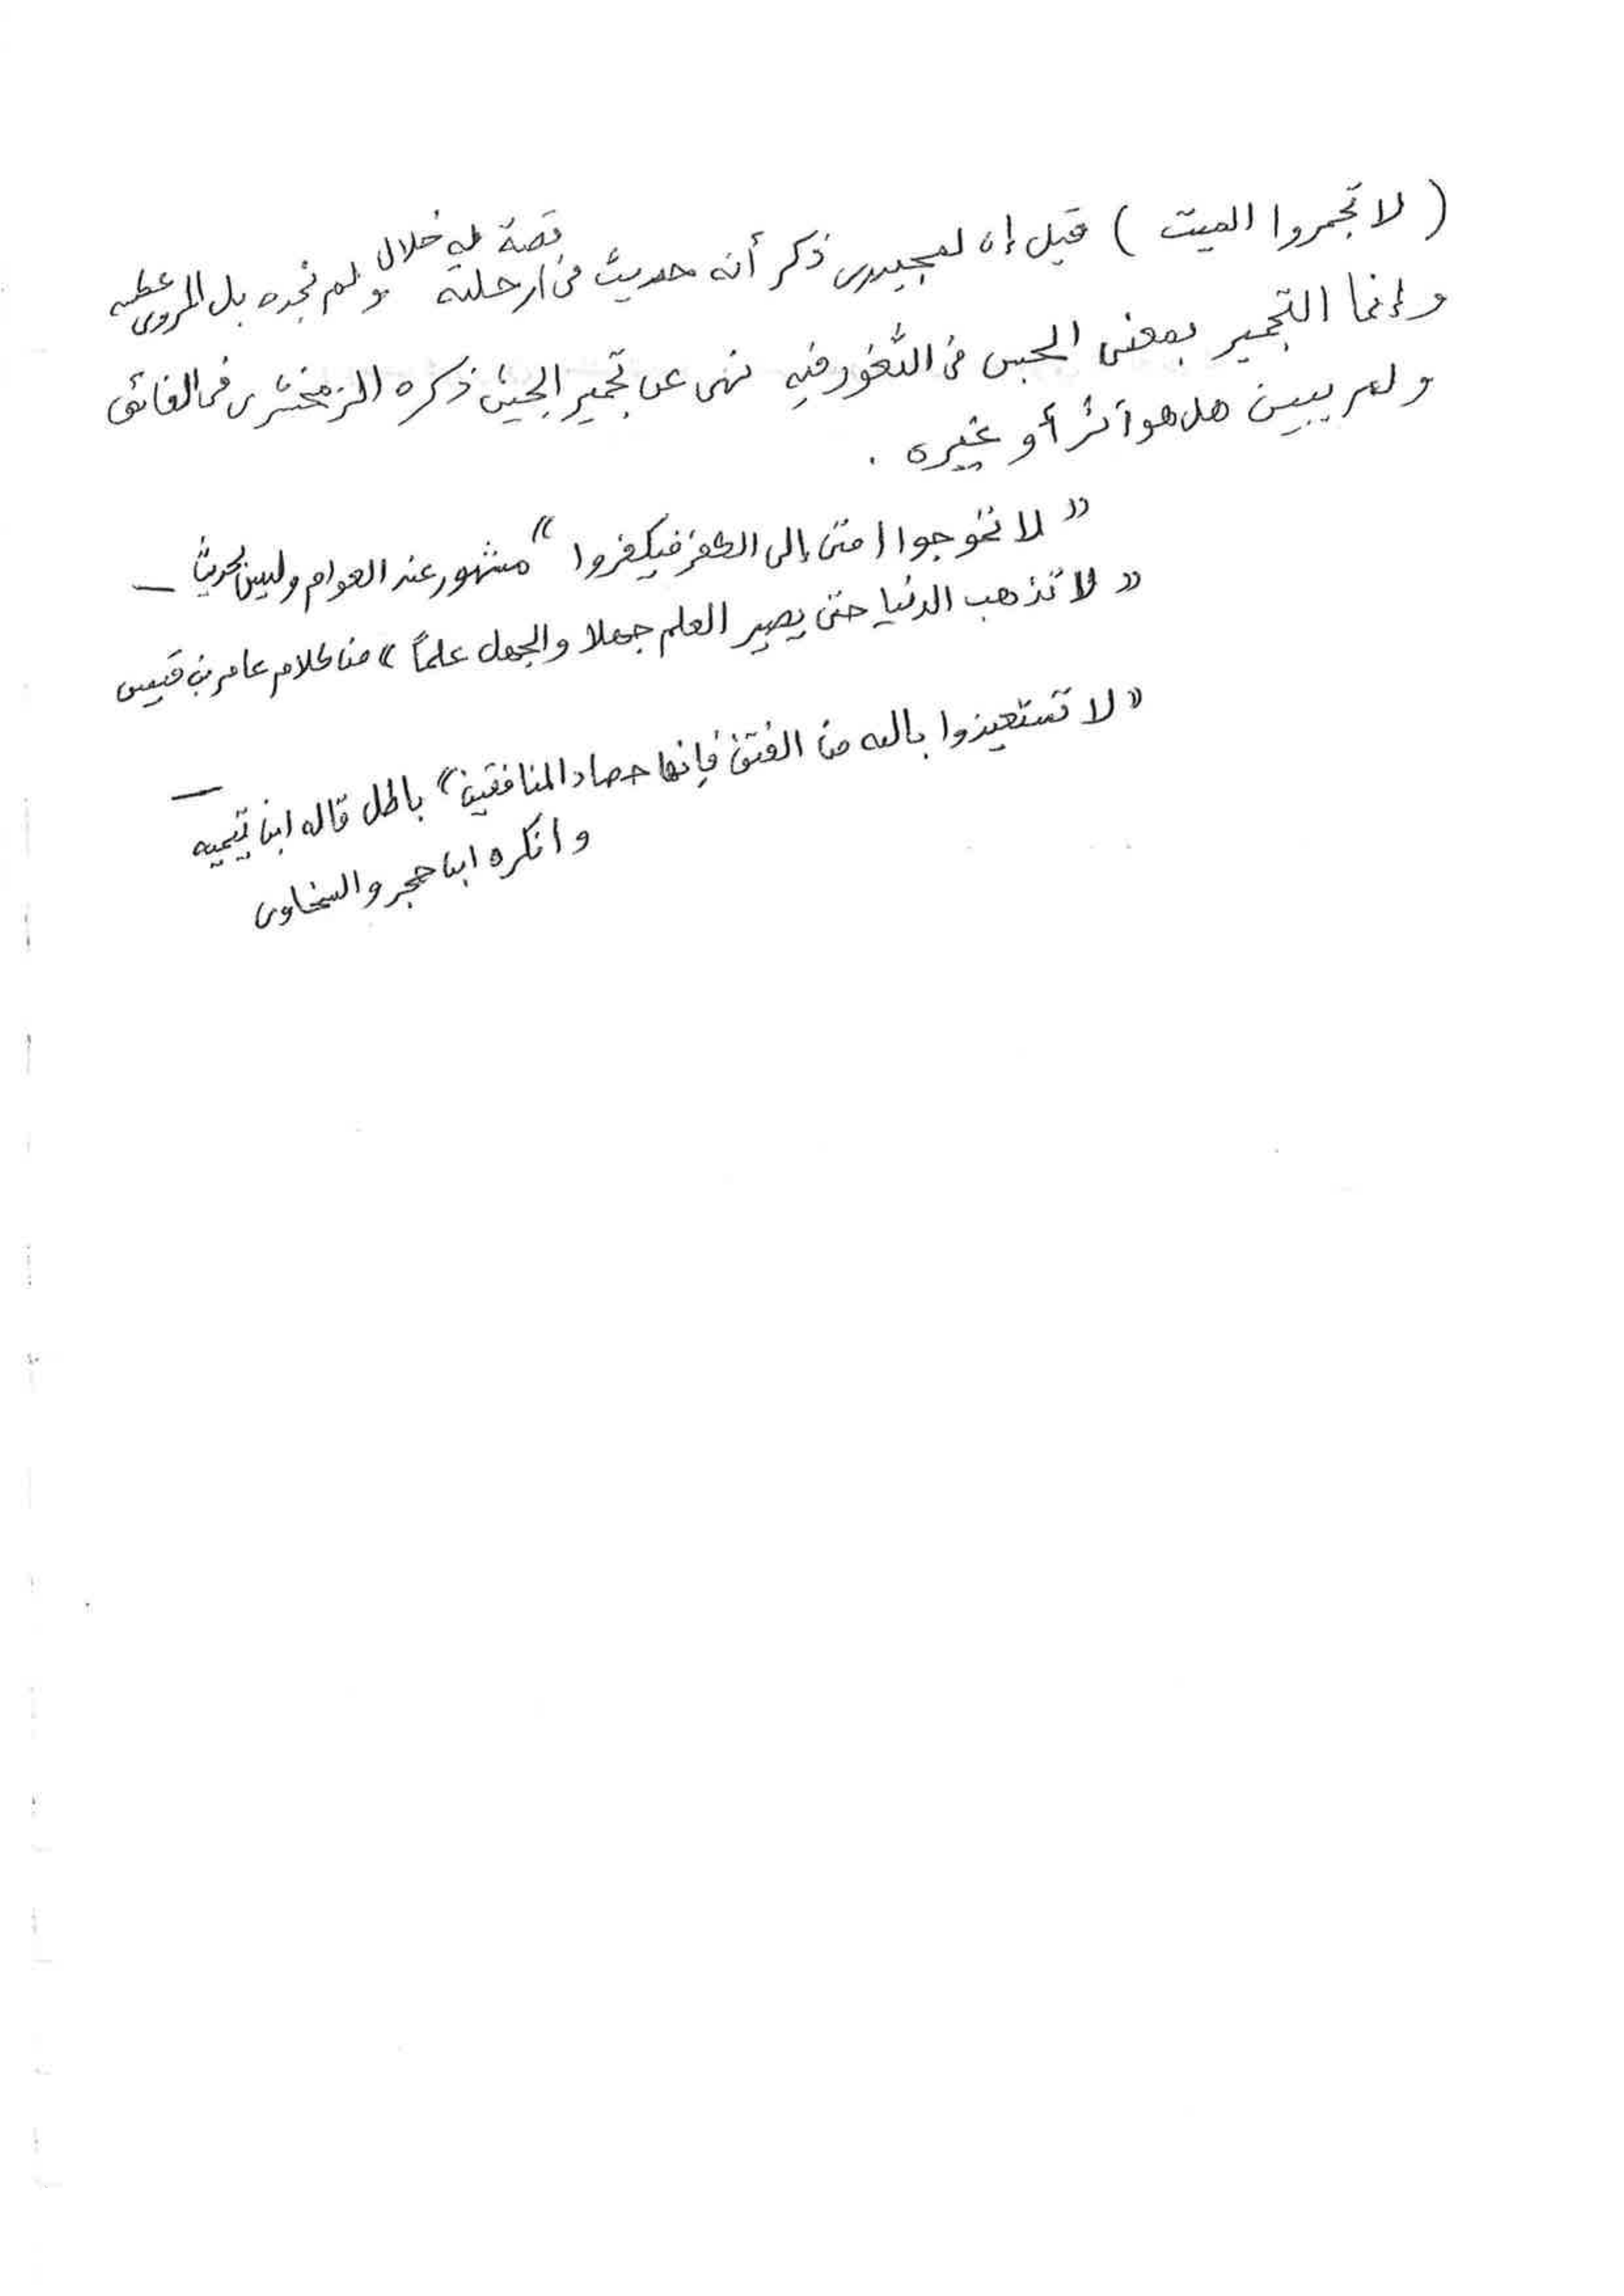 ( لا تجمروا الميت ) قيل إن لمجيدرى ذكر أنه حديث فى ارحلته قصة له خلال ولم نجده بل المروى عظيم
وإنما التجمير بمعنى الحبس فى الثغور فيه نهى عن تجمير الجيش ذكره الزمخشرى فى الفائق
ولم يبين هل هو أثر أو غيره .
« لا تخوجوا امتى إلى الكفر فيكفروا » مشهور عند العوام وليس بحديث —
« لا تذهب الدنيا حتى يصير العلم جهلا والجهل علماً » من كلام عامر بن قيس
« لا تستعيذوا بالله من الفتن فإنها حصاد المنافقين » باطل قاله ابن تيميه —
وانكره ابن حجر والسخاوى